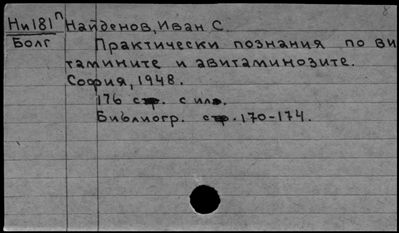 Ни181п Найденов, Иван С.
Болг Практически познания по ви
тамините и авитаминозите.
София, 1948.
176 стр. с ил.
Библиогр. стр. 170-174.